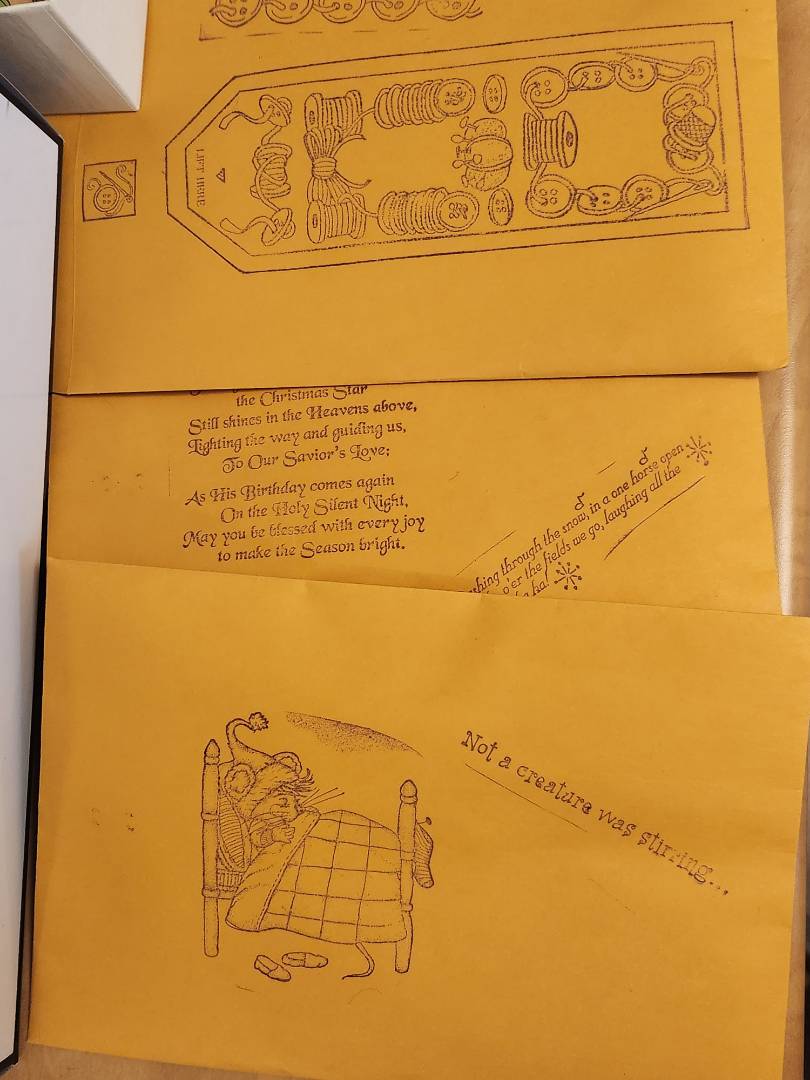 LIFT HERE
the Christmas Star
Still shines in the Heavens above,
Lighting the way and guiding us,
To Our Savior's Love;
As His Birthday comes again
On the Holy Silent Night,
May you be blessed with every joy
to make the Season bright.
shing through the snow, in a one horse open
o'er the fields we go, laughing all the
ha!
Not a creature was stirring...